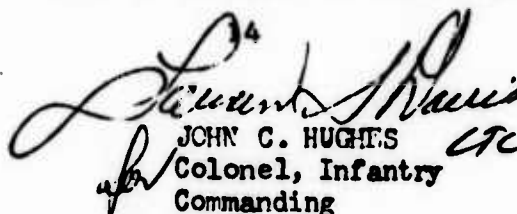 14
JOHN C. HUGHES
for Colonel, Infantry
Commanding